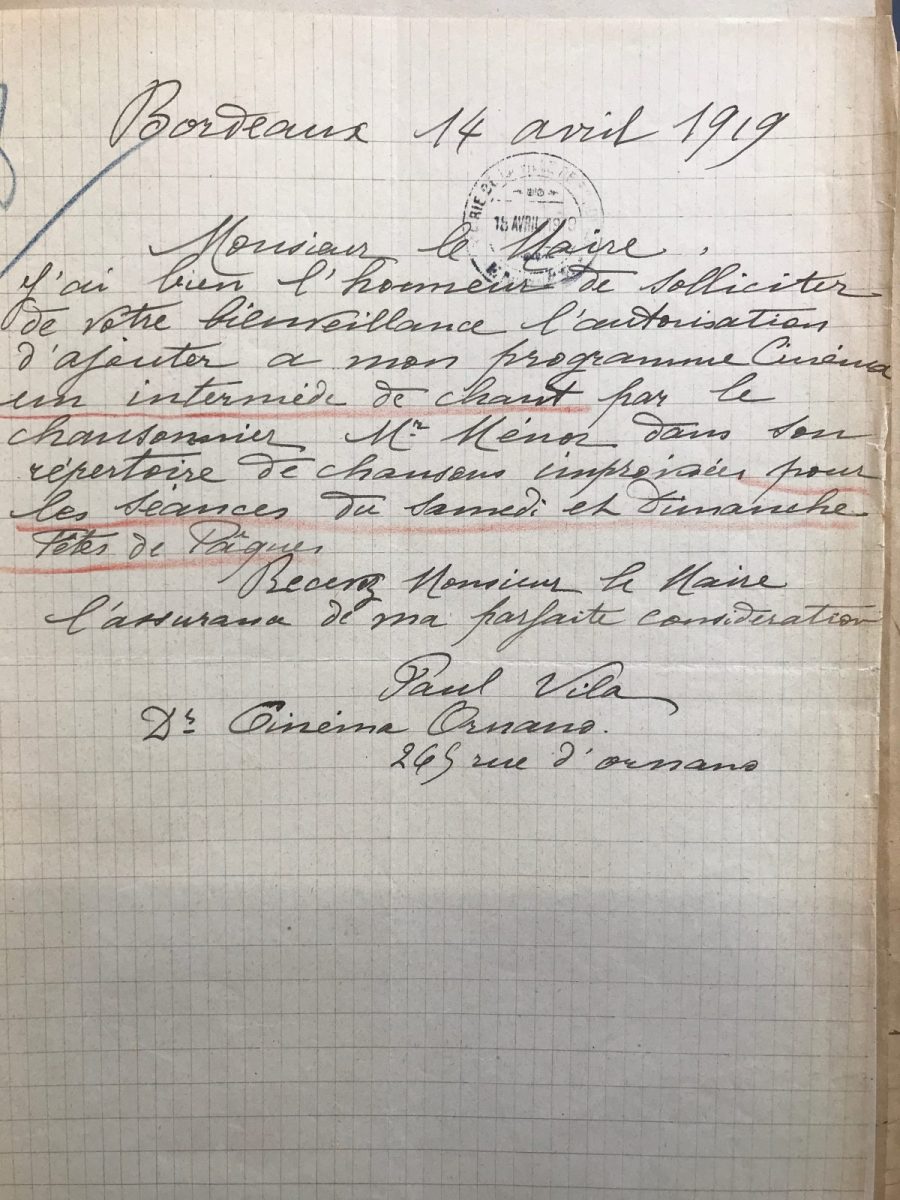 Bordeaux 14 avril 1919
15 AVRIL 19
Monsieur le Maire,
J'ai bien l'honneur de solliciter
de votre bienveillance l'autorisation
d'ajouter a mon programme Cinéma
un intermède de chant par le
chansonnier Mr Ménor dans son
répertoire de chansons improvisées pour
les séances du samedi et Dimanche
Fêtes de Pâques
Recevez Monsieur le Maire
l'assurance de ma parfaite consideration
Paul Vila
Dr Cinéma Ornano.
265 rue d'ornano